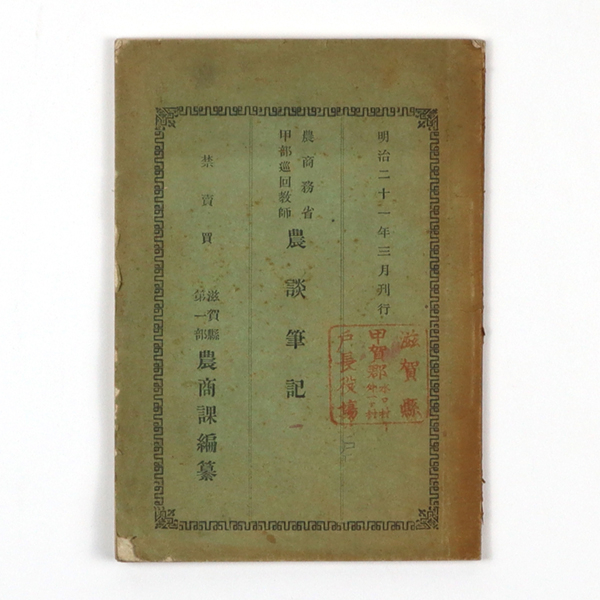 明治二十一年三月刊行
農商務省
甲部巡回教師
農談筆記
禁賣買
滋賀縣
第一部
農商課編纂
滋賀縣
甲賀郡
水口村
外一ヶ村
戸長役場